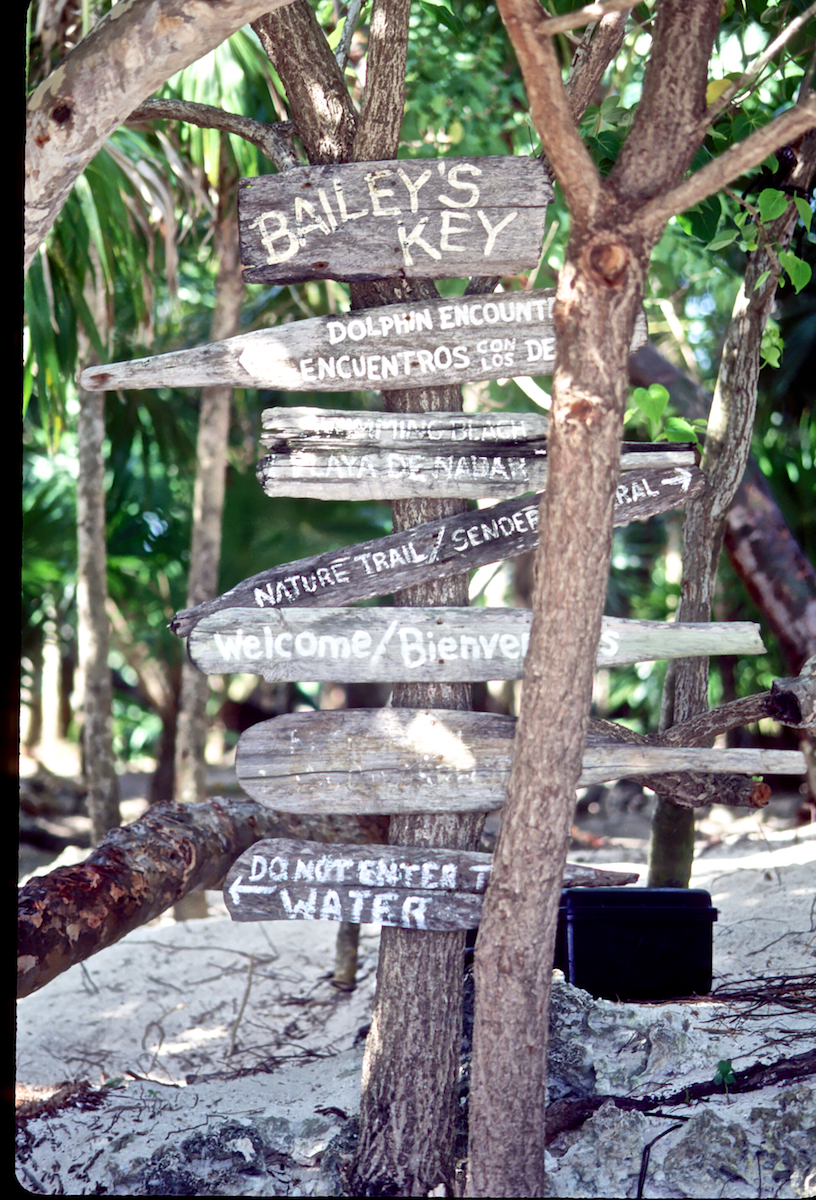 BAILEY'S
KEY
DOLPHIN ENCOUNT
ENCUENTROS CON LOS DE
SWIMMING BEACH
PLAYA DE NADAR
NATURE TRAIL/SENDER RAL →
Welcome/Bienve s
DO NOT ENTER T
← WATER